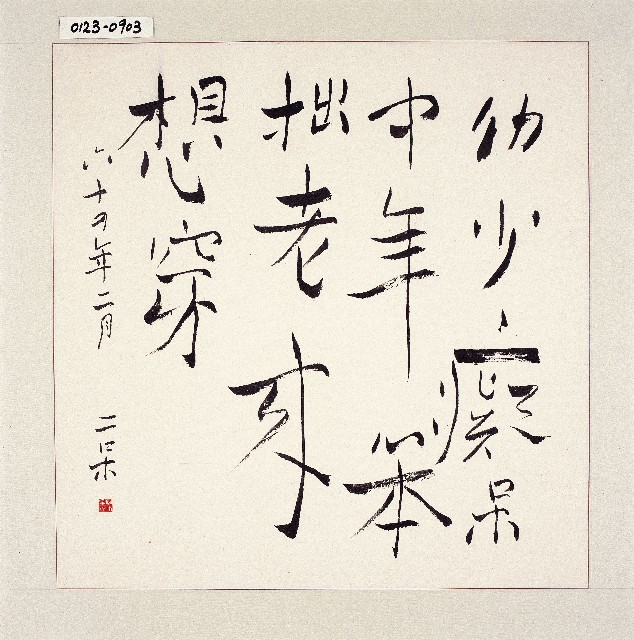 0123-0903
幼少癡呆
中年笨
拙老來
想穿
六十四年二月 二呆